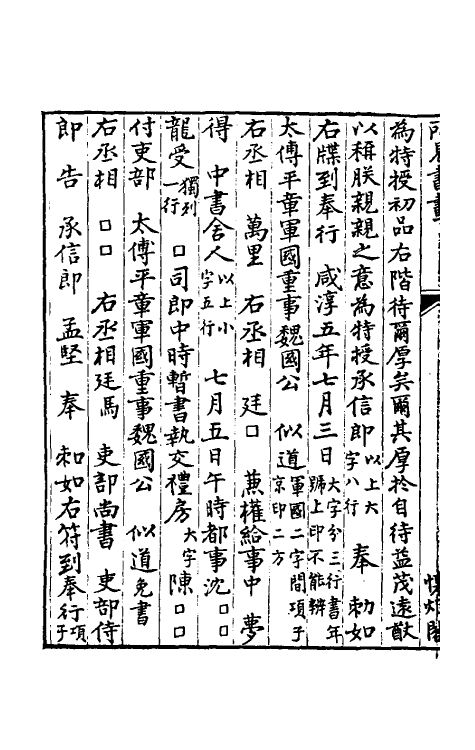 為特授初品右階待爾厚矣爾其厚於自待益茂遠猷
以稱朕親親之意為特授承信郎以上六字八行　奉　勅如
右牒到奉行　咸淳五年七月三日大字分三行書年號上印不能辨
太傅平章軍國重事魏國公　似道軍國二字間項子京印二方
右丞相　萬里　右丞相　廷□　蒹權給事中　夢
得　中書舍人以上小字五行　七月五日午時都事沈□□
龍受獨列一行　□司郎中時暫書執交禮房大字　陳□□
付吏部　太傅平章軍國重事魏國公　似道免書
右丞相　□□　右丞相廷馬　吏部尚書　吏部侍
郎　告　承信郎　孟堅　奉　勅如右符到奉行項子